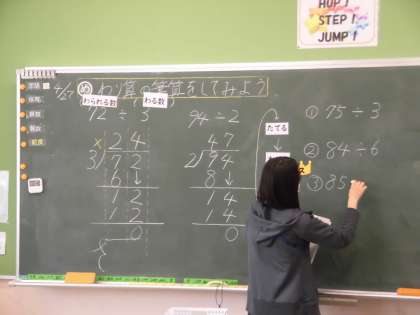 HOP!
STEP!
JUMP!
わり算の筆算をしてみよう
わられる数
わる数
72 ÷ 3
94 ÷ 2
24
3)72
6↓
12
12
0
47
2)94
8↓
14
14
0
たてる
① 75 ÷ 3
② 84 ÷ 6
③ 85
国語
算数